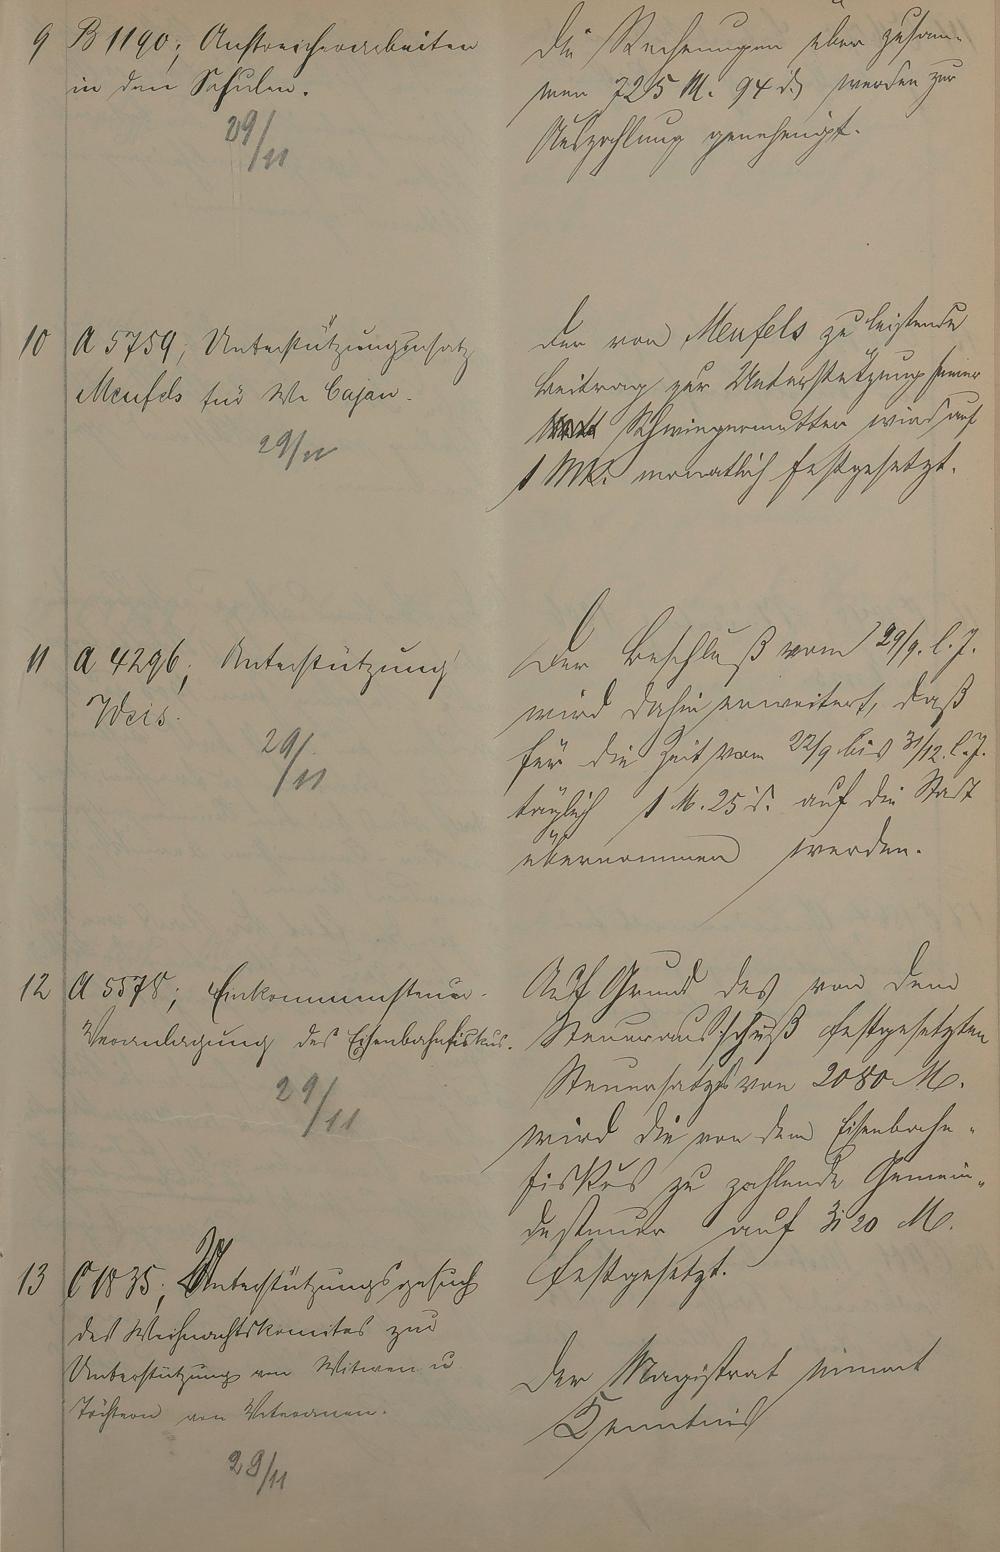 9 B 1190; Anstreicherarbeiten
in den Schulen.
29/11
Die Rechnungen über zusam-
men 725 M. 94 d. werden zur
Auszahlung genehmigt.
10 A 5759; Unterstützungsersatz
Meufels für We Cajan.
29/11
Der von Meufels zu leistende
Beitrag zur Unterstützung seiner
Schwiegermutter wird auf
1 Mk. monatlich festgesetzt.
11 A 4296; Unterstützung
Weis.
29/11
Der Beschluß vom 29/9. l. J.
wird dahin erweitert, daß
für die Zeit vom 22/9 bis 31/12. l. J.
täglich 1 M. 25 d. auf die Stadt
übernommen werden.
12 A 5578; Einkommensteuer-
Veranlagung des Eisenbahnfiskus.
29/11
Auf Grund des von dem
Steuerausschuß festgesetzten
Steuersatzes von 2080 M.
wird die von dem Eisenbahn-
fiskus zu zahlende Gemein-
desteuer auf 3120 M.
festgesetzt.
13 C 1835; Unterstützungsgesuch
des Weihnachtskomites zur
Unterstützung von Witwen u.
Töchtern von Veteranen.
29/11
Der Magistrat nimmt
Kenntnis